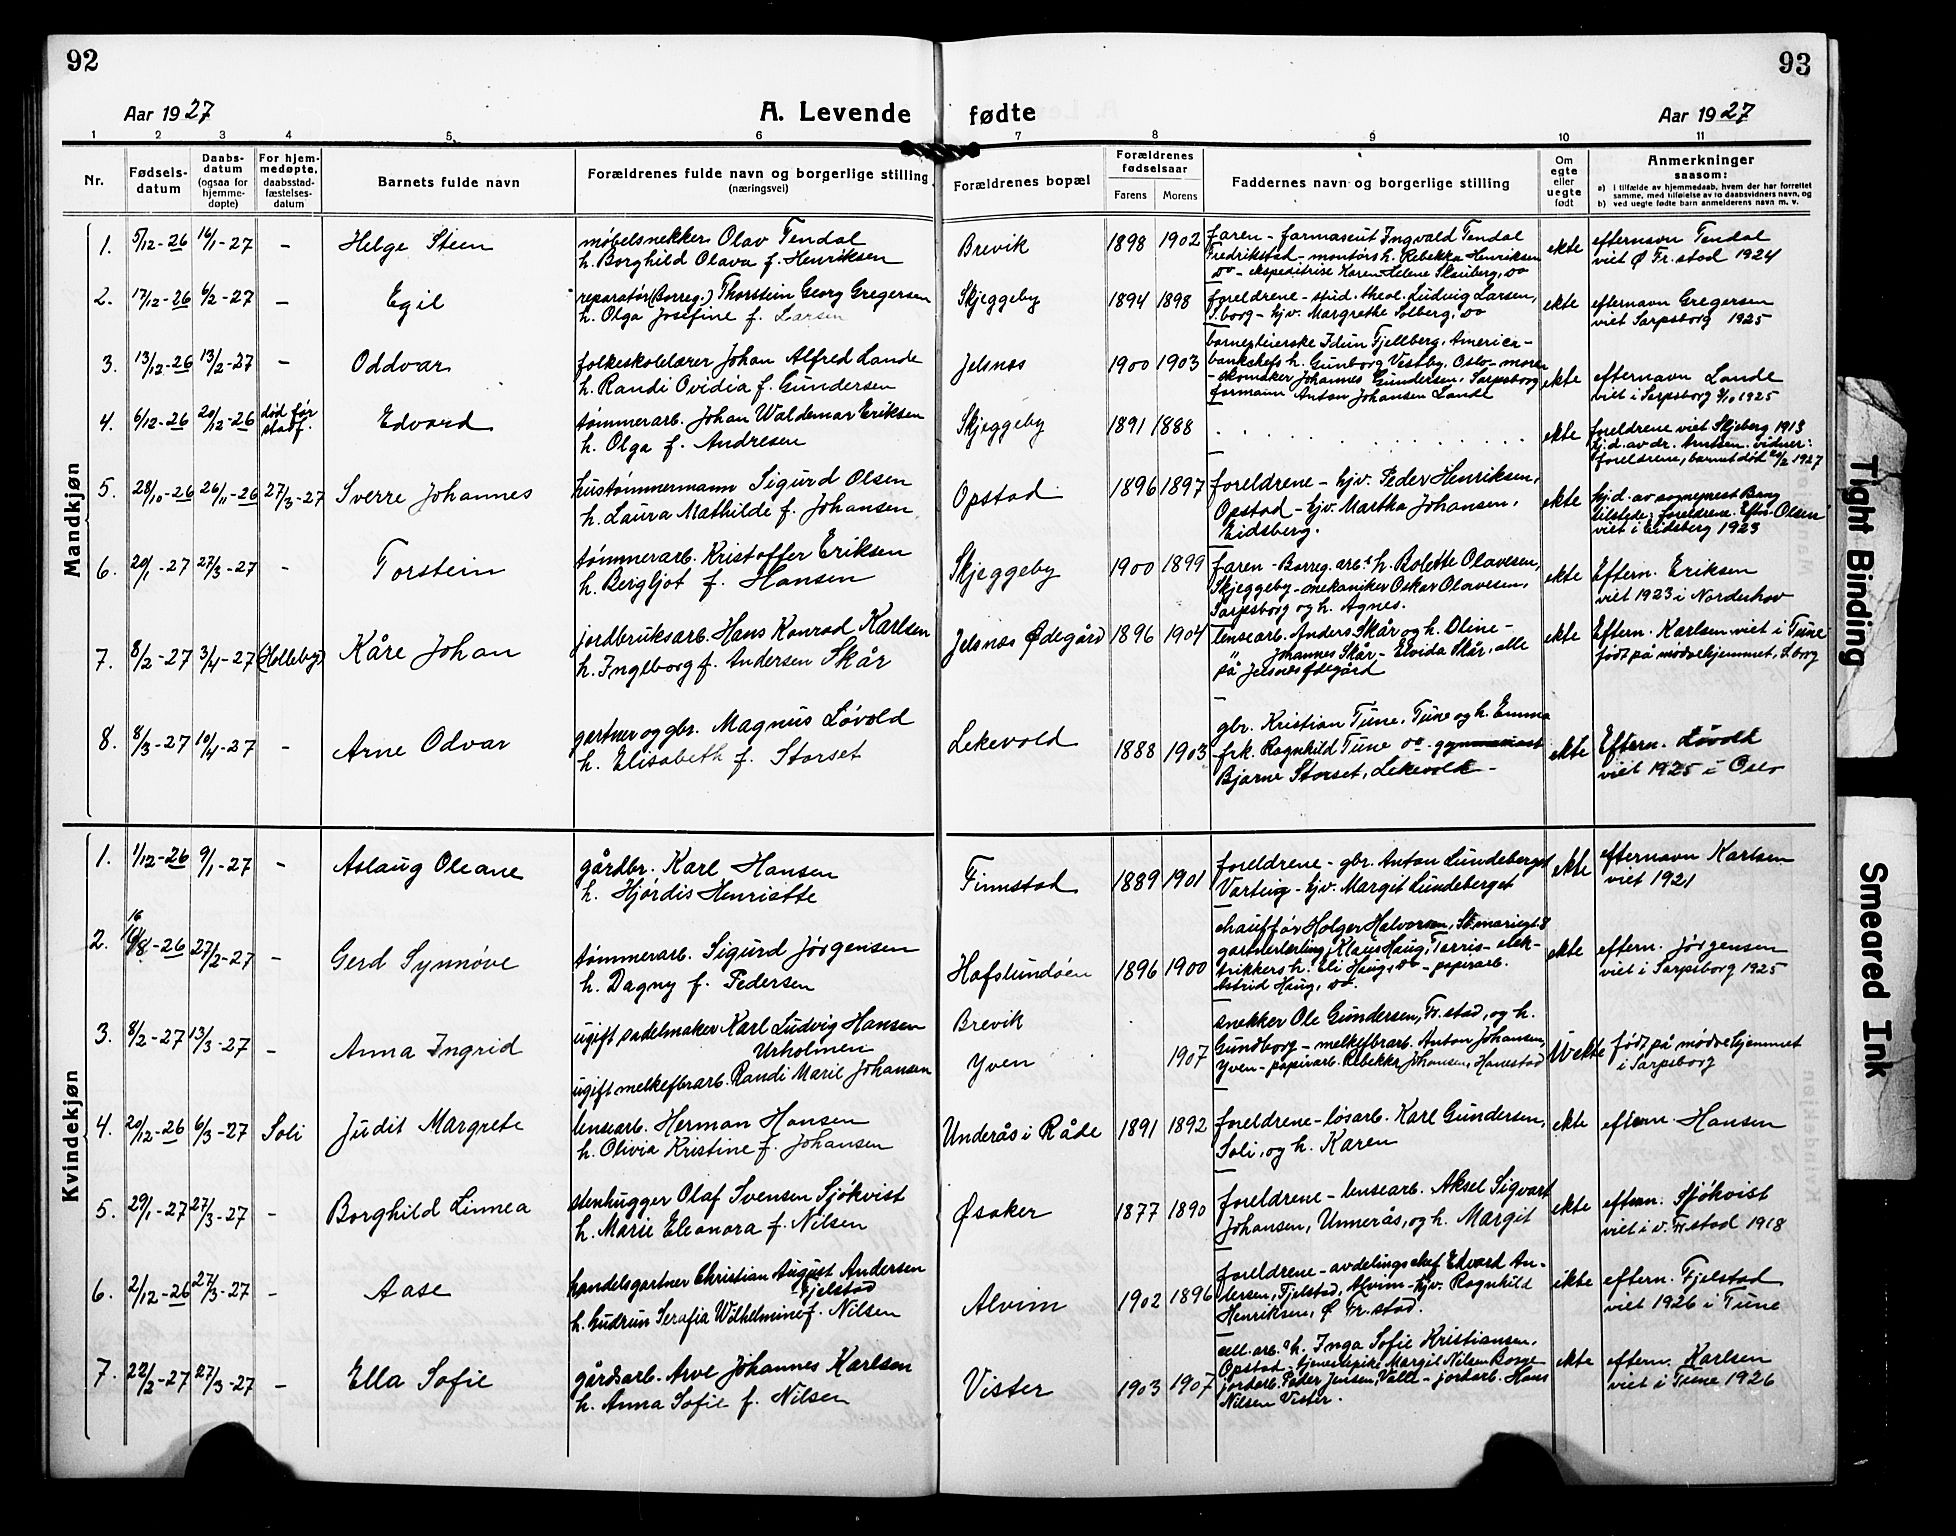 92
93
Aar 1927
A. Levende fødte
Aar 1927
1 2 3 4 5 6 7 8 9 10 11
Nr.
Fødsels-
datum
Daabs-
datum
(ogsaa for
hjemme-
døpte)
For hjem-
medøpte,
daabsstad-
fæstelses-
datum
Barnets fulde navn
Forældrenes fulde navn og borgerlige stilling
(næringsvei)
Forældrenes bopæl
Forældrenes
fødselsaar
Farens Morens
Faddernes navn og borgerlige stilling
Om
egte
eller
uegte
født
Anmerkninger
saasom:
a) i tilfælde av hjemmedaab, hvem der har forrettet
samme, med tilføielse av to daabsvidners navn, og
b) ved uegte fødte barn anmelderens navn m. v.
Mandkjøn
1. 5/12-26 16/1-27 - Helge Steen
møbelsnekker Olav Tendal
h. Borghild Olava f. Henriksen
Brevik 1898 1902
faren - farmaseut Ingvald Tendal
Fredrikstad - montørs h. Rebekka Henriksen
oo - ekspeditrise Karen-Helene Skauberg, oo
ekte
efternavn Tendal
viet Ø Fr.stad 1924
2. 17/12-26 6/2-27 - Egil
reparatør (Borreg.) Thorstein Georg Gregersen
h. Olga Josefine f. Larsen
Skjeggeby 1894 1898
foreldrene - stud. theol. Ludvig Larsen,
S.borg - hjv. Margrethe Solberg, oo
ekte
efternavn Gregersen
viet Sarpsborg 1925
3. 13/12-26 13/2-27 - Oddvar
folkeskolelærer Johan Alfred Lande
h. Randi Ovidia f. Gundersen
Jelsnes 1900 1903
barnepleierske Idun Fjellberg, America -
bankchefs h. Gunborg Vestby, Oslo - moren
- skomaker Johannes Gundersen, Sarpsborg
formann Anton Johansen Lande
ekte
efternavn Lande
viet i Sarpsborg 3/10 1925
4. 6/12-26 20/12-26 død før
stadf.
Edvard
tømmerarb. Johan Waldemar Eriksen
h. Olga f. Andresen
Skjeggeby 1891 1888
. . . . . . . . . .
ekte
foreldrene viet Skjeberg 1913
hj.d. av dr. Arntsen. vidner:
foreldrene, barnet død 20/2 1927
5. 28/10-26 26/11-26 27/3-27 Sverre Johannes
hustømmermann Sigurd Olsen
h. Laura Mathilde f. Johansen
Opstad 1896 1897
foreldrene - hjv. Peder Henriksen,
Opstad - hjv. Martha Johansen,
Eidsberg.
ekte
hj.d. av sogneprest Bang
tilstede: foreldrene. Eftn. Olsen
viet i Eidsberg 1923
6. 20/1-27 27/3-27 - Torstein
tømmerarb. Kristoffer Eriksen
h. Bergljot f. Hansen
Skjeggeby 1900 1899
faren - Borreg.arbs h. Bolette Olavesen,
Skjeggeby - mekaniker Oskar Olavesen,
Sarpsborg og h. Agnes.
ekte
Eftern. Eriksen
viet 1923 i Norderhov
7. 8/2-27 3/4-27 (Hølleby) Kåre Johan
jordbruksarb. Hans Konrad Karlsen
h. Ingeborg f. Andersen Skår
Jelsnes Ødegård 1896 1904
lensearb. Anders Skår og h. Oline -
" Johannes Skår - Elvida Skår, alle
på Jelsnesødegård
ekte
Eftern. Karlsen, viet i Tune
født på mødrehjemmet, S.borg
8. 8/3-27 10/4-27 - Arne Odvar
gartner og gbr. Magnus Løvold
h. Elisabeth f. Storset
Lekevold 1888 1903
gbr. Kristian Tune, Tune og h. Emma
- frk. Ragnhild Tune oo - gymnasiast
Bjarne Storset, Lekevold -
ekte
Eftern. Løvold
viet 1925 i Oslo
Kvindekjøn
1. 1/12-26 9/1-27 - Aslaug Oleane
gårdbr. Karl Hansen
h. Hjørdis Henriette
Finnstad 1889 1901
foreldrene - gbr. Anton Lundeberget
Varteig - hjv. Margit Lundeberget
ekte
efternavn Karlsen
viet 1921
2. 16/8-26 27/2-27 - Gerd Synnøve
16
tømmerarb. Sigurd Jørgensen
h. Dagny f. Pedersen
Hafslundøen 1896 1900
chauffør Holger Halvorsen, St.mariegt 8
gartnerlærling Klaus Haug, Torris - elek-
trikkers h. Eli Haug, oo - papirarb.
Astrid Haug, oo.
ekte
eftern. Jørgensen
viet i Sarpsborg 1925
3. 8/2-27 13/3-27 - Anna Ingrid
ugift sadelmaker Karl Ludvig Hansen
Urholmen
ugift melkefbrarb. Randi Marie Johansen
Brevik
Yven
1907
snekker Ole Gundersen, Fr.stad, og h.
Gundborg - melkefbrarb. Anton Johansen,
Yven - papirarb. Rebekka Johansen, Hanestad
Uekte
født på mødrehjemmet
i Sarpsborg
4. 20/12-26 6/3-27 Soli Judit Margrete
lensearb. Herman Hansen
h. Olivia Kristine f. Johansen
Underås i Råde 1891 1892
foreldrene - løsarb. Karl Gundersen,
Soli, og h. Karen
ekte
eftern. Hansen
5. 29/1-27 27/3-27 - Borghild Linnea
stenhugger Olaf Svensen Sjøkvist
h. Marie Eleonora f. Nilsen
Øsaker 1877 1890
foreldrene - lensearb. Aksel Sigvart
Johansen, Unnerås, og h. Margit
ekte
eftern. Sjøkvist
viet i v. Fr.stad 1918
6. 2/12-26 27/3-27 - Aase
handelsgartner Christian August Andersen
Fjelstad
h. Gudrun Serafia Wilhelmine f. Nilsen
Alvim 1902 1896
foreldrene - avdelingschef Edvard An-
dersen, Fjelstad, Alvim - hjv. Ragnhild
Henriksen, Ø Fr.stad.
ekte
eftern. Fjelstad
viet 1926 i Tune
7. 22/2-27 27/3-27 - Ella Sofie
gårdsarb. Arve Johannes Karlsen
h. Anna Sofie f. Nilsen
Vister 1903 1907
cell.arb.s h. Inga Sofie Kristiansen,
Opstad - tjenestepike Margit Nilsen Borge
jordarb. Peder Jensen, Valle - jordarb. Hans
Nilsen Vister.
ekte
eftern. Karlsen
viet i Tune 1926
Tight Binding
Smeared Ink